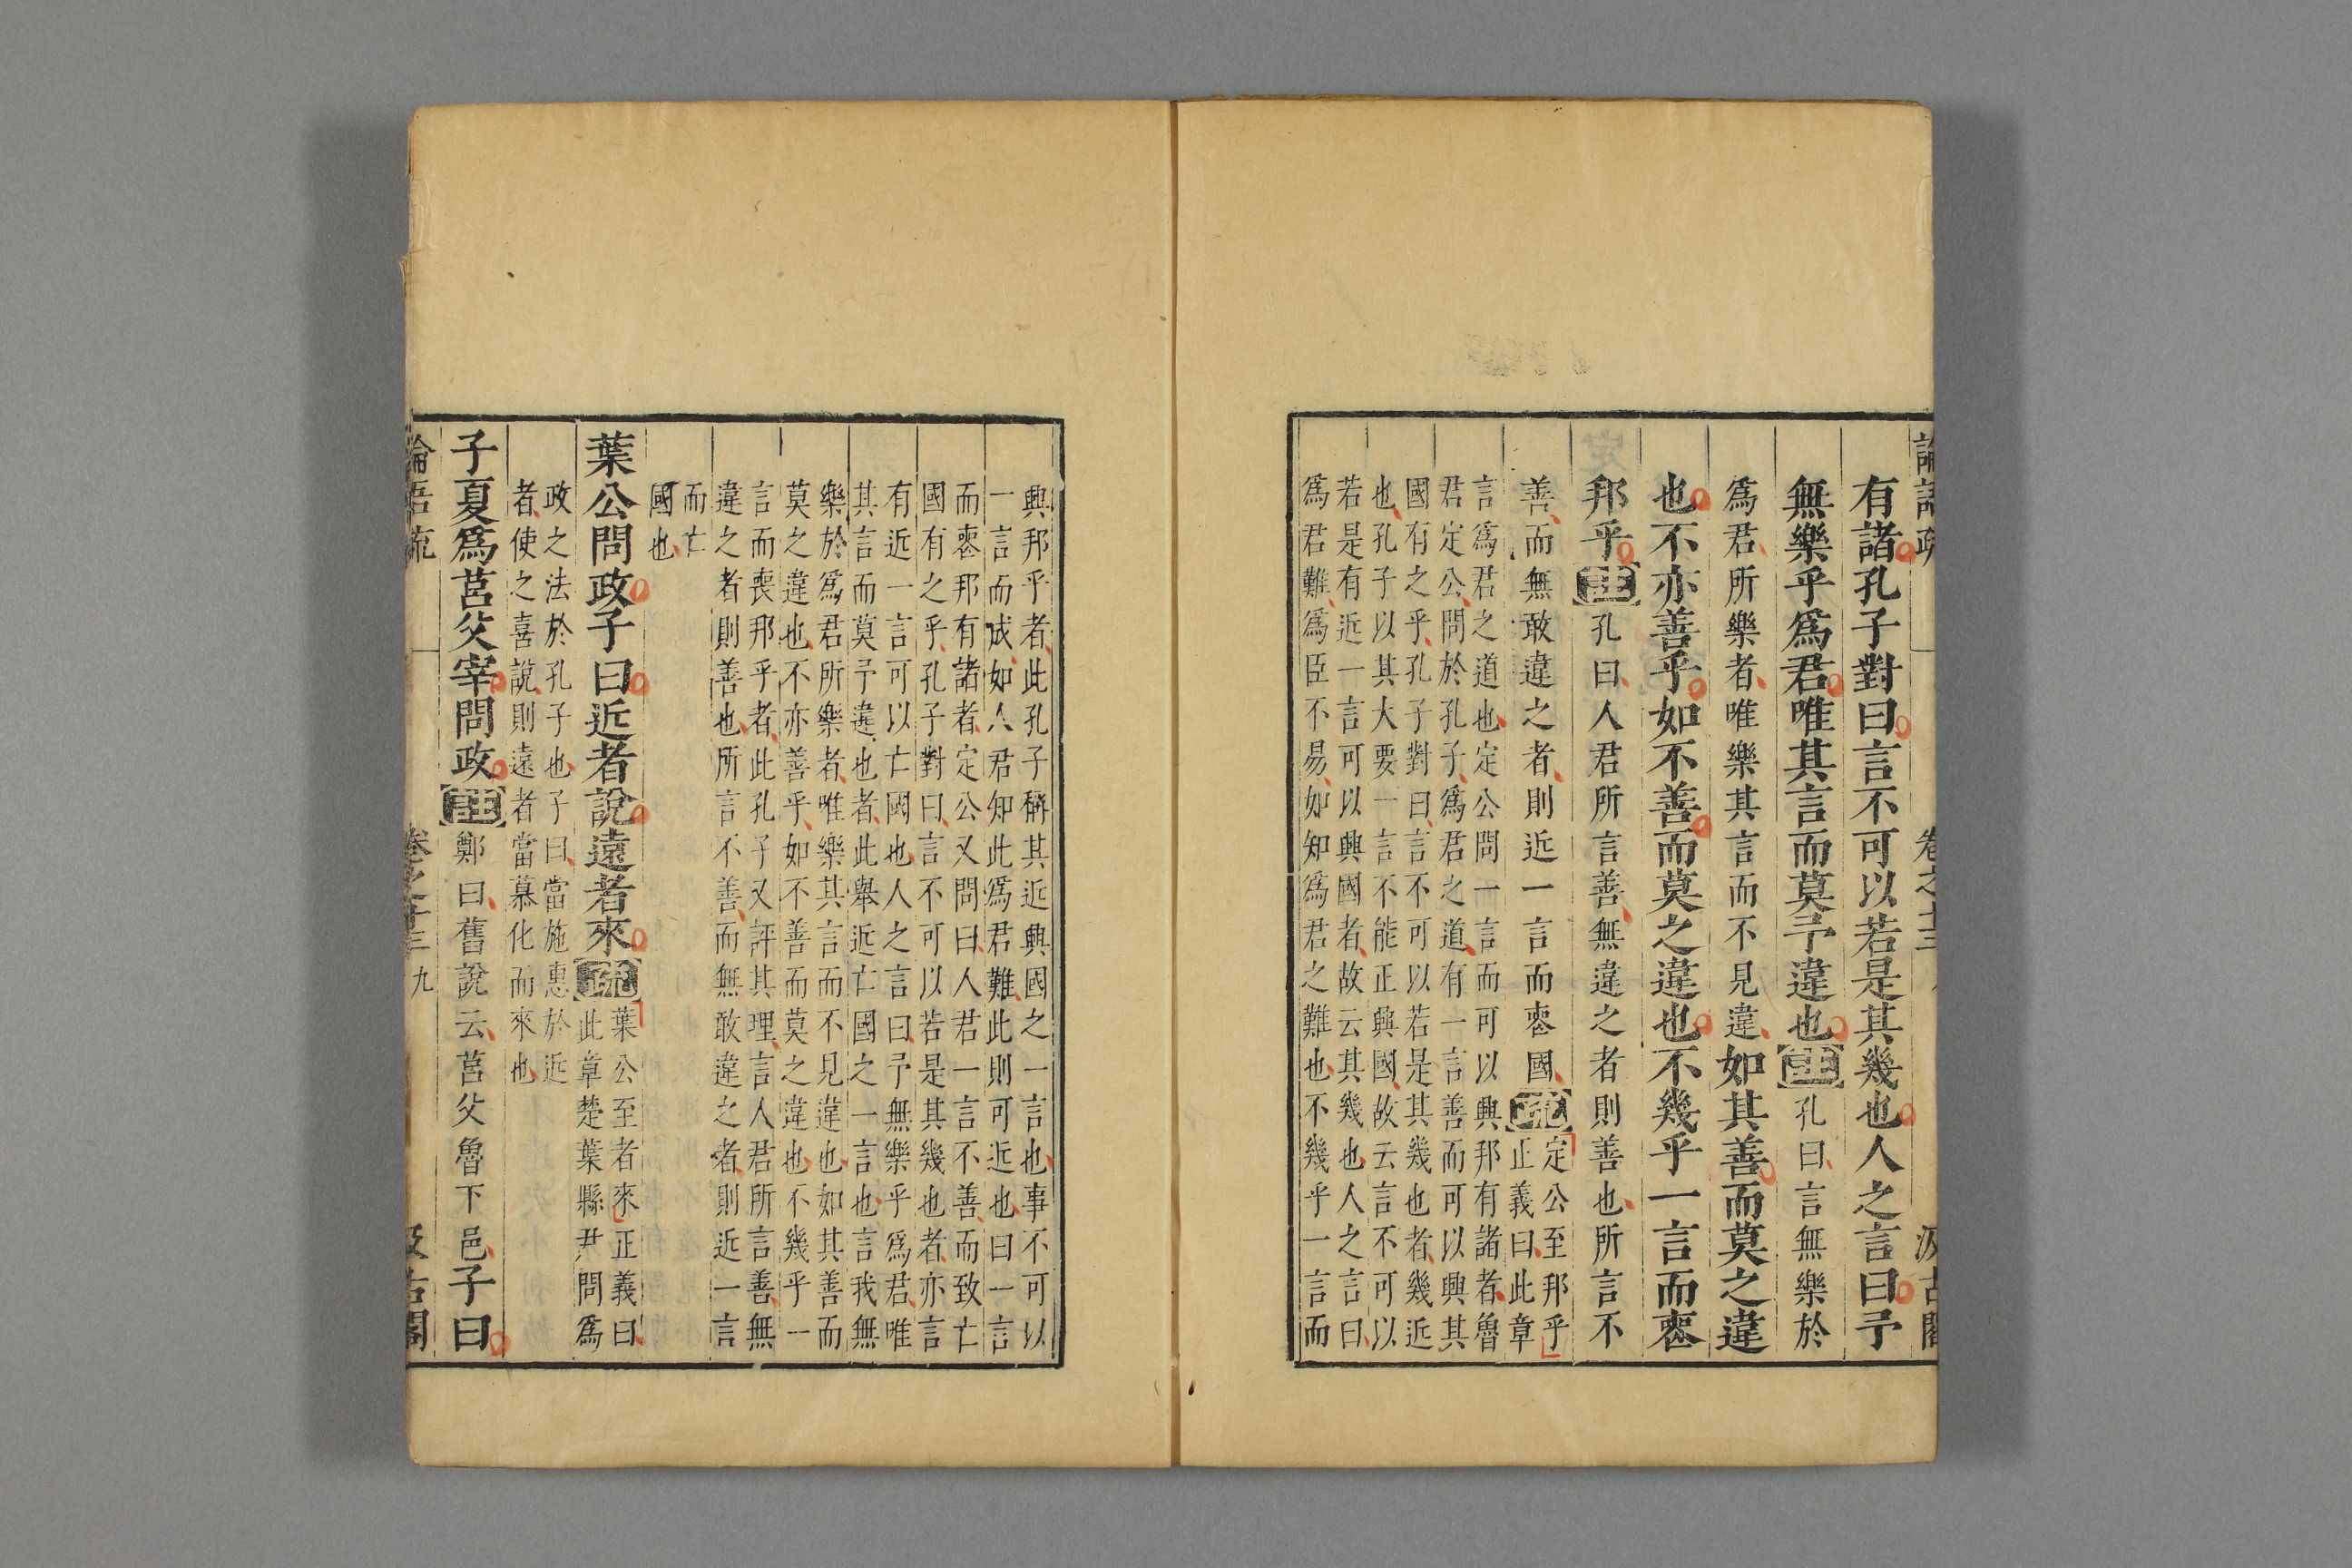 論語疏 卷之十三 汲古閣
有諸孔子對曰言不可以若是其幾也人之言曰予
無樂乎爲君唯其言而莫予違也注孔曰言無樂於
爲君所樂者唯樂其言而不見違如其善而莫之違
也不亦善乎如不善而莫之違也不幾乎一言而喪
邦乎注孔曰人君所言善無違之者則善也所言不
善而無敢違之者則近一言而喪國疏定公至邦乎
正義曰此章
言爲君之道也定公問一言而可以興邦有諸者魯
君定公問於孔子爲君之道有一言善而可以興其
國有之乎孔子對曰言不可以若是其幾也者幾近
也孔子以其大要一言不能正興國故云言不可以
若是有近一言可以興國者故云其幾也人之言曰
爲君難爲臣不易如知爲君之難也不幾乎一言而
興邦乎者此孔子稱其近興國之一言也事不可以
一言而成如人君知此爲君難此則可近也曰一言
而喪邦有諸者定公又問曰人君一言不善而致亡
國有之乎孔子對曰言不可以若是其幾也者亦言
有近一言可以亡國也人之言曰予無樂乎爲君唯
其言而莫予違也者此舉近亡國之一言也言我無
樂於爲君所樂者唯樂其言而不見違也如其善而
莫之違也不亦善乎如不善而莫之違也不幾乎一
言而喪邦乎者此孔子又評其理言人君所言善無
違之者則善也所言不善而無敢違之者則近一言
而亡
國也
葉公問政子曰近者說遠者來疏葉公至者來正義曰
此章楚葉縣尹問爲
政之法於孔子也子曰當施惠於近
者使之喜說則遠者當慕化而來也
子夏爲莒父宰問政注鄭曰舊說云莒父魯下邑子曰
論語疏 卷之十三 九 汲古閣